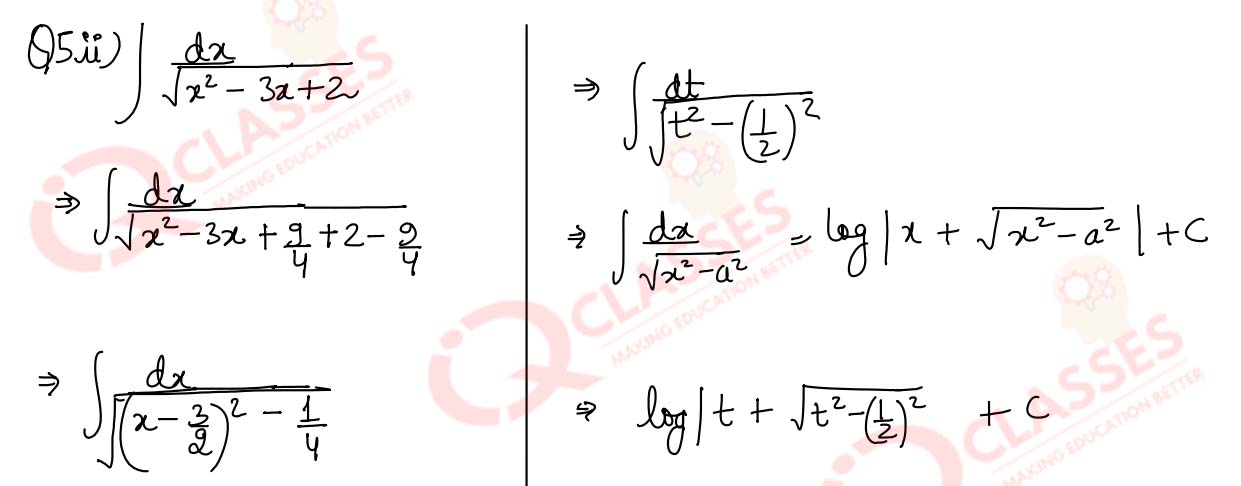 Q5.ii) ∫ dx / √(x² - 3x + 2)
⇒ ∫ dx / √(x² - 3x + 9/4 + 2 - 9/4)
⇒ ∫ dx / √((x - 3/2)² - 1/4)
⇒ ∫ dt / √(t² - (1/2)²)
⇒ ∫ dx / √(x² - a²) = log | x + √(x² - a²) | + C
⇒ log | t + √(t² - (1/2)²) + C
iQ CLASSES
MAKING EDUCATION BETTER
iQ CLASSES
MAKING EDUCATION BETTER
CLASSES
MAKING EDUCATION BETTER